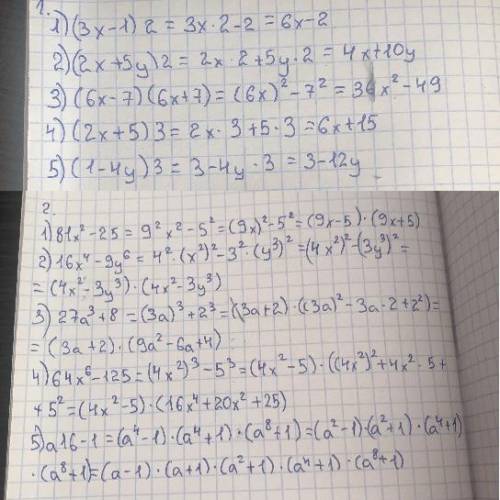 1.
1) (3x-1) 2 = 3x·2-2 = 6x-2
2) (2x+5y) 2 = 2x·2+5y·2 = 4x+10y
3) (6x-7) (6x+7) = (6x)²-7² = 36x²-49
4) (2x+5) 3 = 2x·3+5·3 = 6x+15
5) (1-4y) 3 = 3-4y·3 = 3-12y
2.
1) 81x²-25 = 9²x²-5² = (9x)²-5² = (9x-5)·(9x+5)
2) 16x⁴-9y⁶ = 4²·(x²)²-3²·(y³)² = (4x²)²-(3y³)² =
= (4x²-3y³)·(4x²-3y³)
3) 27a³+8 = (3a)³+2³ = (3a+2)·((3a)²-3a·2+2²) =
= (3a+2)·(9a²-6a+4)
4) 64x⁶-125 = (4x²)³-5³ = (4x²-5)·((4x²)²+4x²·5+
+5² = (4x²-5)·(16x⁴+20x²+25)
5) a16-1 = (a⁴-1)·(a⁴+1)·(a⁸+1) = (a²-1)·(a²+1)·(a⁴+1)
·(a⁸+1) = (a-1)·(a+1)·(a²+1)·(a⁴+1)·(a⁸+1)